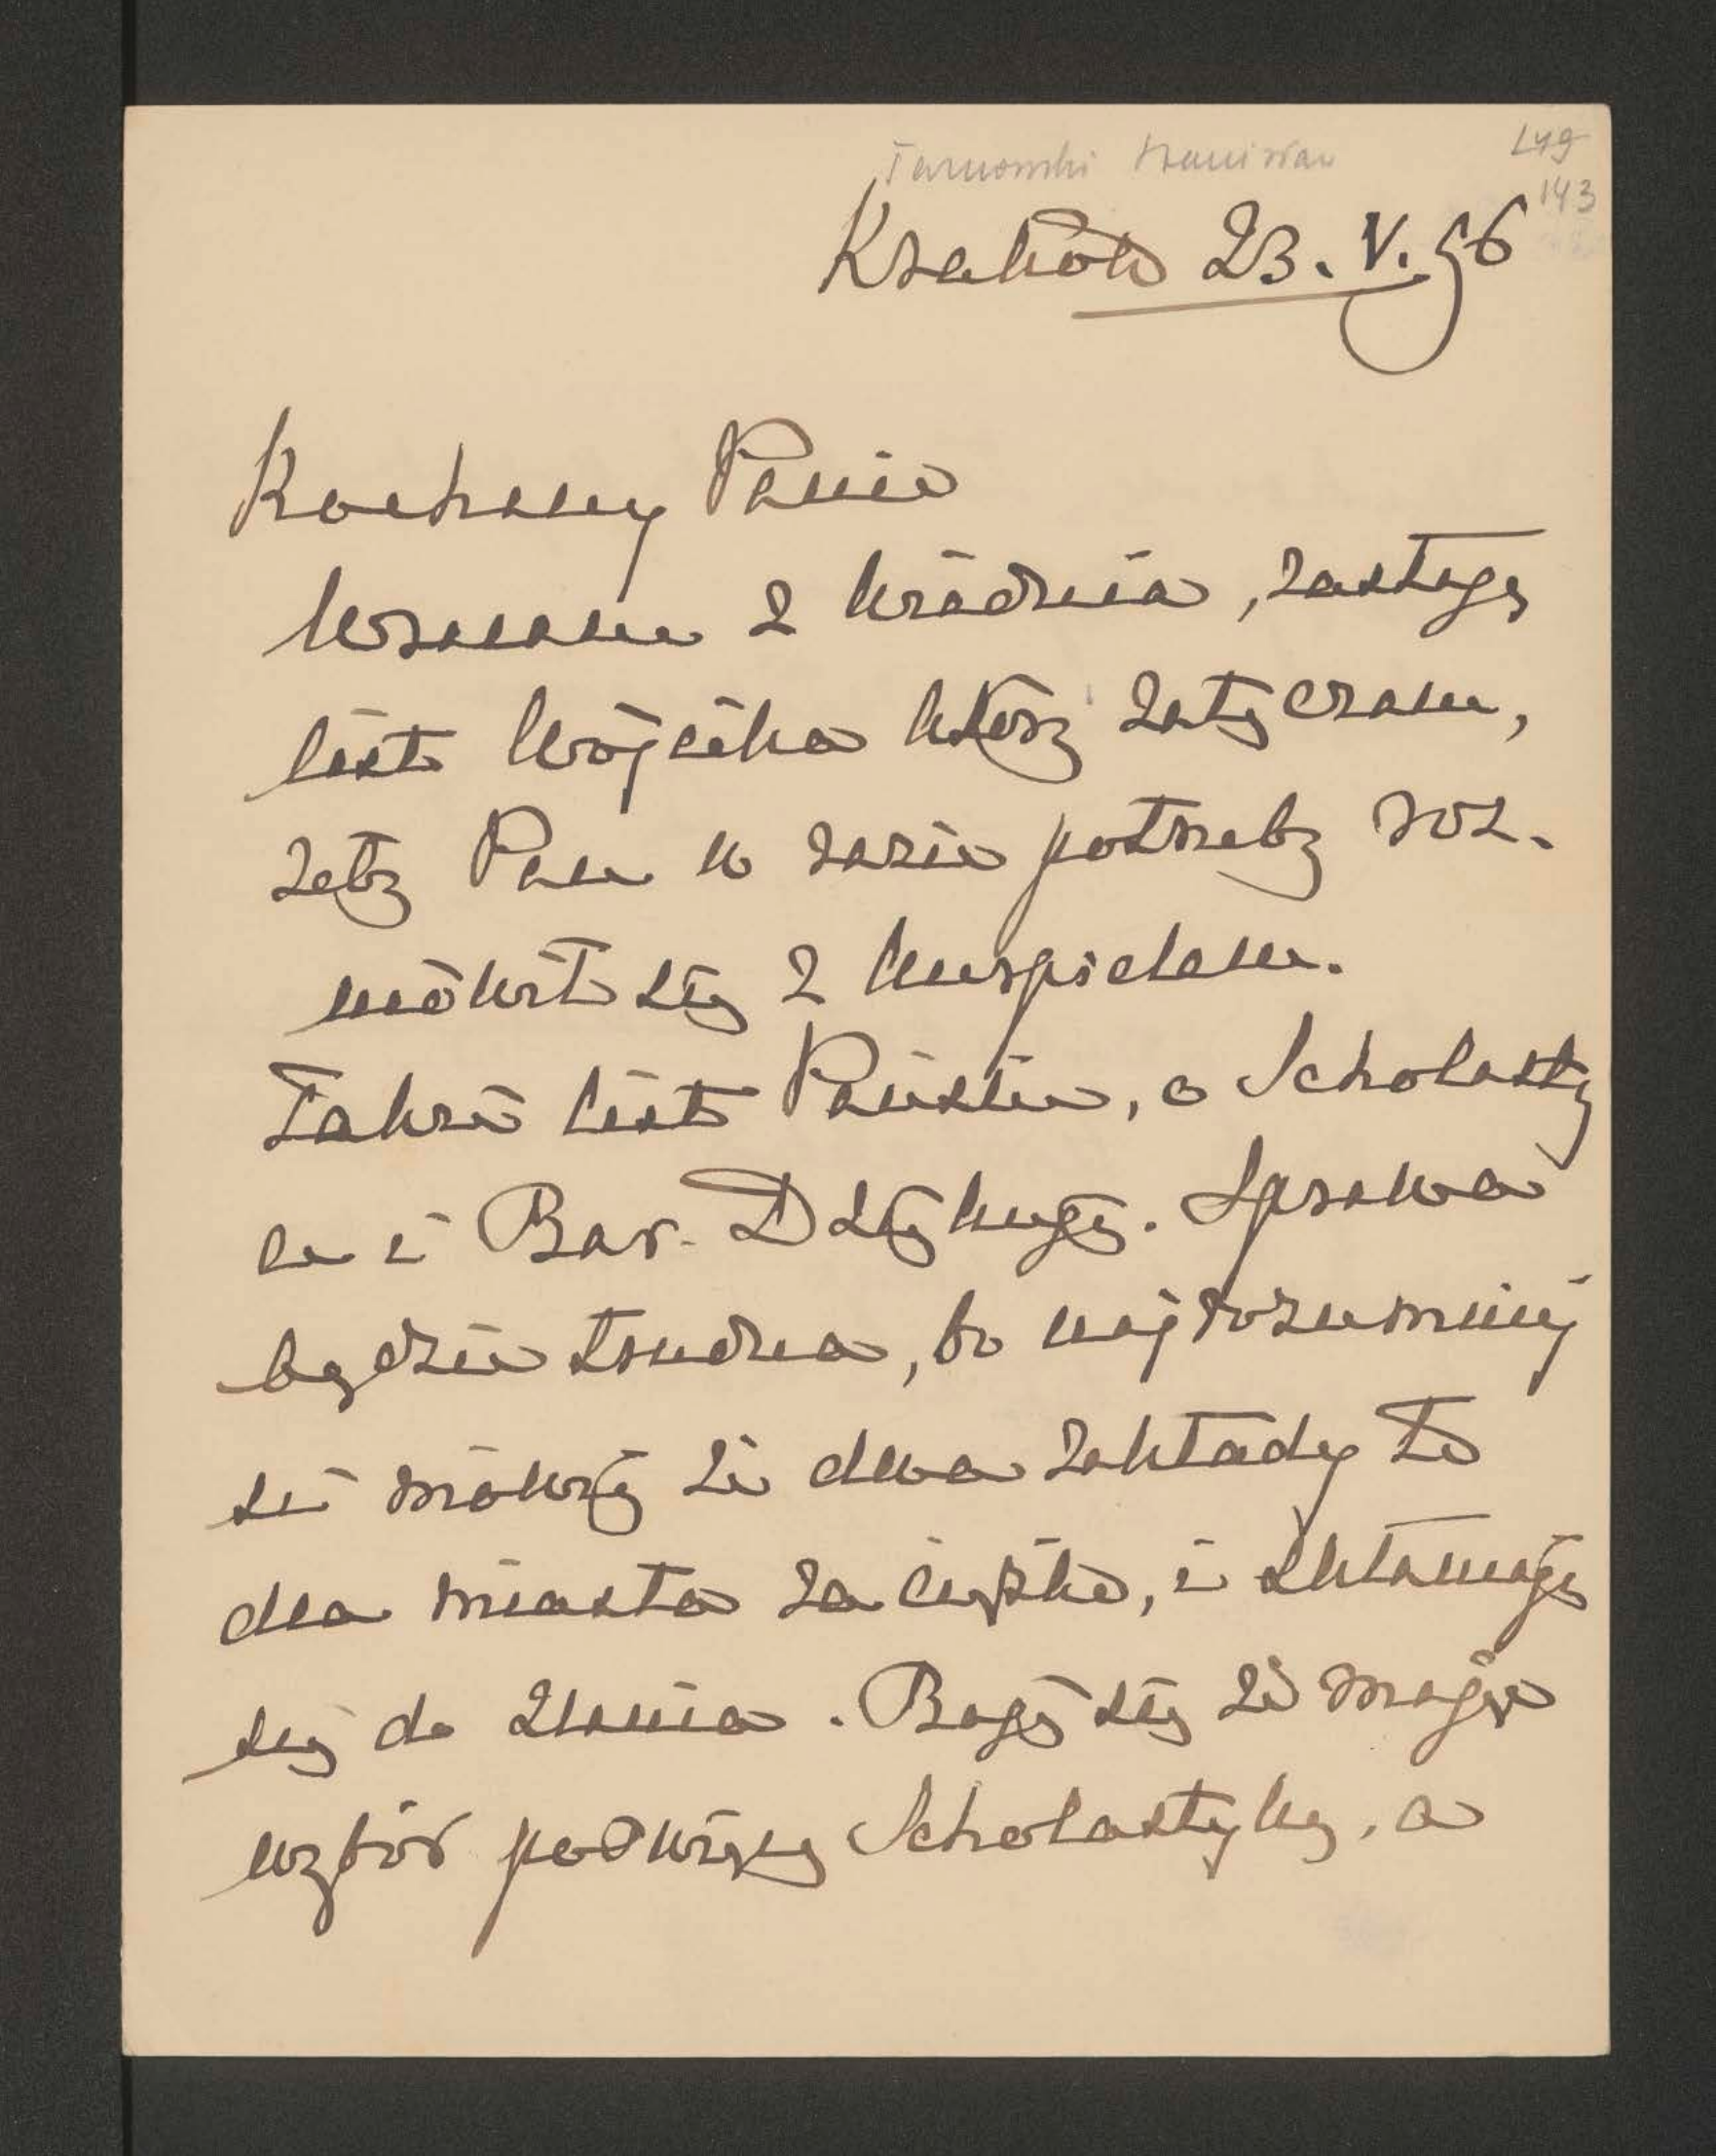 Tarnowski Stanisław
149
143
Kraków 23. V. 96
Kochany Panie
Wracam z Wiednia, zastaję
list Wójcika który załączam,
żeby Pan w razie potrzeby roz-
mówił się z
Także list Pański, o Scholasty
ce i Bar. Sprawa
będzie trudna, bo najrozumniej
si mówią że dwa zakłady to
dla miasta za ciężko, i skłaniają
się do zlania. Boję się że mając
wybór poświęcą Scholastykę, a